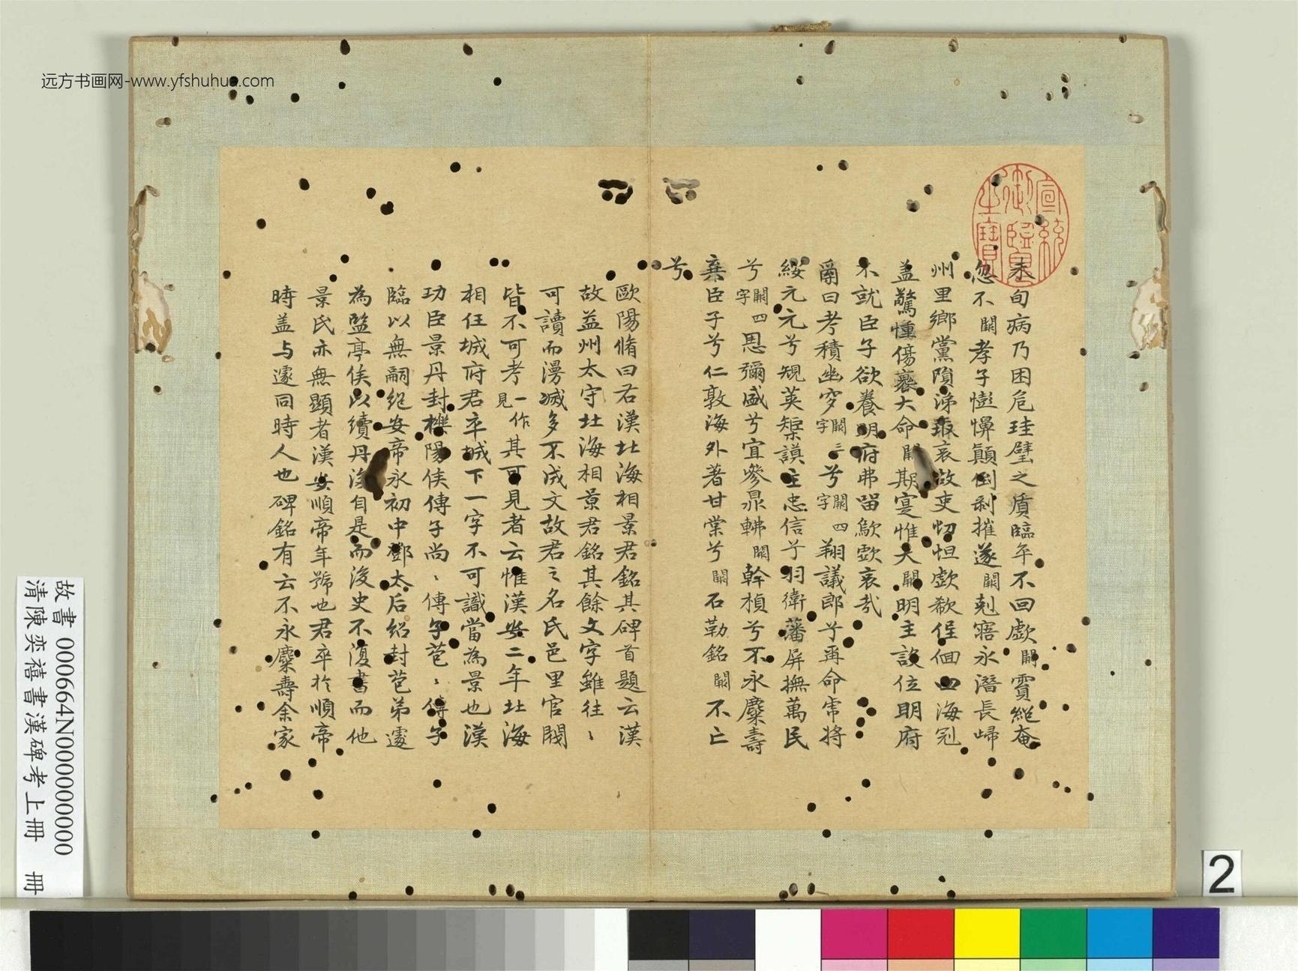 远方书画网-www.yfshuhua.com
宣統御覽之寶
未旬病乃困危珪璧之質臨卒不回歔闕霣絕奄
忽不闕孝子憽懍顛倒剝摧遂闕剋寤永潛長歸
州里鄉黨隕涕哀故吏忉怛歔欷低佪四海冠
蓋驚慟傷褱大命闕期寔惟天闕明主設位明府
不就臣子欲養明府弗留歍歔哀哉
曰考積幽穸闕三字兮闕四字翔議郎兮再命虎將
綏元元兮規英謨主忠信兮羽衛藩屏撫萬民
兮闕四字恩彌盛兮宜參鼎闕幹楨兮不永麋壽
棄臣子兮仁敦海外著甘棠兮闕石勒銘闕不亡
兮
歐陽脩曰右漢北海相景君銘其碑首題云漢
故益州太守北海相景君銘其餘文字雖往往
可讀而漫滅多不成文故君之名氏邑里官閥
皆不可考一作見其可見者云惟漢安二年北海
相任城府君卒城下一字不可識當為景也漢
功臣景丹封櫟陽侯傳子尚尚傳子苞苞傳子
臨以無嗣絕安帝永初中鄧太后紹封苞弟遽
為監亭侯以續丹後自是而後史不復書而他
景氏亦無顯者漢安順帝年號也君卒於順帝
時蓋与遽同時人也碑銘有云不永麋壽余家
故書 000664N000000000
清陳奕禧書漢碑考上冊 冊
2